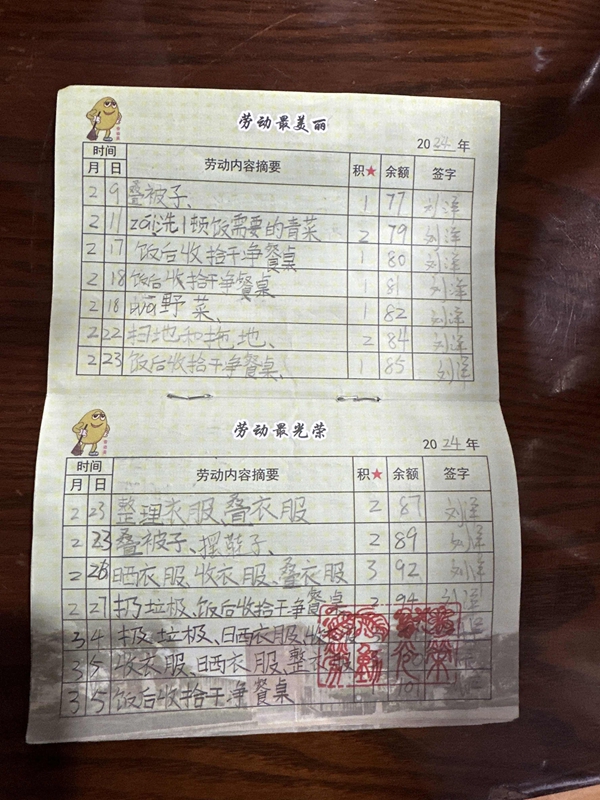 劳动最美丽
2024年
时间 劳动内容摘要 积★ 余额 签字
月 日
2 9 叠被子、 1 77 刘洋
2 11 zai洗1顿饭需要的青菜 2 79 刘洋
2 17 饭后收拾干净餐桌 1 80 刘洋
2 18 饭后收拾干净餐桌 1 81 刘洋
2 18 wa野菜、 1 82 刘洋
2 22 扫地和拖地、 2 84 刘洋
2 23 饭后收拾干净餐桌、 1 85 刘洋
劳动最光荣
2024年
时间 劳动内容摘要 积★ 余额 签字
月 日
2 23 整理衣服、叠衣服 2 87 刘洋
2 23 叠被子、摆鞋子、 2 89 刘洋
2 26 晒衣服、收衣服、叠衣服 3 92 刘洋
2 27 扔垃极、饭后收拾干净餐桌 2 94 刘洋
3 4 扔垃极、晒衣服、收
3 5 收衣服、晒衣服、整衣服
3 5 饭后收拾干净餐桌